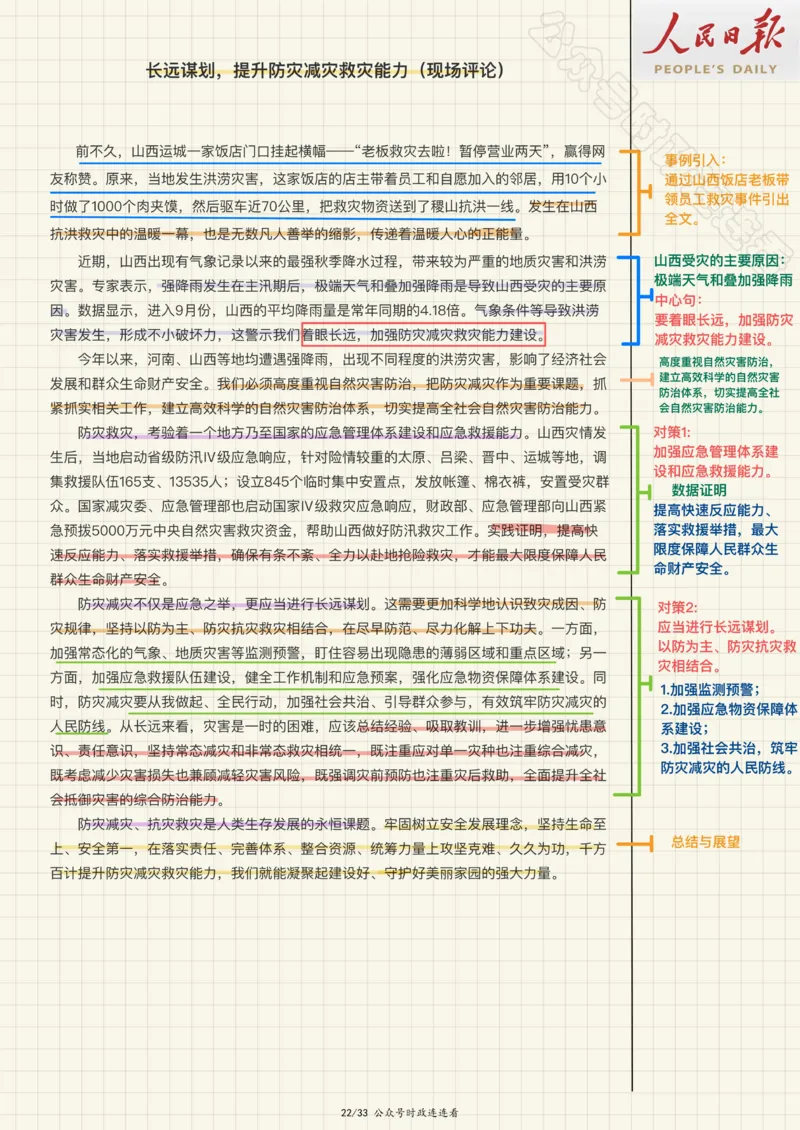 人民日报
PEOPLE'S DAILY
长远谋划，提升防灾减灾救灾能力（现场评论）
前不久，山西运城一家饭店门口挂起横幅——“老板救灾去啦！暂停营业两天”，赢得网
友称赞。原来，当地发生洪涝灾害，这家饭店的店主带着员工和自愿加入的邻居，用10个小
时做了1000个肉夹馍，然后驱车近70公里，把救灾物资送到了稷山抗洪一线。发生在山西
抗洪救灾中的温暖一幕，也是无数凡人善举的缩影，传递着温暖人心的正能量。
近期，山西出现有气象记录以来的最强秋季降水过程，带来较为严重的地质灾害和洪涝
灾害。专家表示，强降雨发生在主汛期后，极端天气和叠加强降雨是导致山西受灾的主要原
因。数据显示，进入9月份，山西的平均降雨量是常年同期的4.18倍。气象条件等导致洪涝
灾害发生，形成不小破坏力，这警示我们着眼长远，加强防灾减灾救灾能力建设。
今年以来，河南、山西等地均遭遇强降雨，出现不同程度的洪涝灾害，影响了经济社会
发展和群众生命财产安全。我们必须高度重视自然灾害防治，把防灾减灾作为重要课题，抓
紧抓实相关工作，建立高效科学的自然灾害防治体系，切实提高全社会自然灾害防治能力。
防灾救灾，考验着一个地方乃至国家的应急管理体系建设和应急救援能力。山西灾情发
生后，当地启动省级防汛Ⅳ级应急响应，针对险情较重的太原、吕梁、晋中、运城等地，调
集救援队伍165支、13535人；设立845个临时集中安置点，发放帐篷、棉衣裤，安置受灾群
众。国家减灾委、应急管理部也启动国家Ⅳ级救灾应急响应，财政部、应急管理部向山西紧
急预拨5000万元中央自然灾害救灾资金，帮助山西做好防汛救灾工作。实践证明，提高快
速反应能力、落实救援举措，确保有条不紊、全力以赴地抢险救灾，才能最大限度保障人民
群众生命财产安全。
防灾减灾不仅是应急之举，更应当进行长远谋划。这需要更加科学地认识致灾成因、防
灾规律，坚持以防为主、防灾抗灾救灾相结合，在尽早防范、尽力化解上下功夫。一方面，
加强常态化的气象、地质灾害等监测预警，盯住容易出现隐患的薄弱区域和重点区域；另一
方面，加强应急救援队伍建设，健全工作机制和应急预案，强化应急物资保障体系建设。同
时，防灾减灾要从我做起、全民行动，加强社会共治、引导群众参与，有效筑牢防灾减灾的
人民防线。从长远来看，灾害是一时的困难，应该总结经验、吸取教训，进一步增强忧患意
识、责任意识，坚持常态减灾和非常态救灾相统一，既注重应对单一灾种也注重综合减灾，
既考虑减少灾害损失也兼顾减轻灾害风险，既强调灾前预防也注重灾后救助，全面提升全社
会抵御灾害的综合防治能力。
防灾减灾、抗灾救灾是人类生存发展的永恒课题。牢固树立安全发展理念，坚持生命至
上、安全第一，在落实责任、完善体系、整合资源、统筹力量上攻坚克难、久久为功，千方
百计提升防灾减灾救灾能力，我们就能凝聚起建设好、守护好美丽家园的强大力量。
事例引入：
通过山西饭店老板带
领员工救灾事件引出
全文。
山西受灾的主要原因：
极端天气和叠加强降雨
中心句：
要着眼长远，加强防灾
减灾救灾能力建设。
高度重视自然灾害防治，
建立高效科学的自然灾害
防治体系，切实提高全社
会自然灾害防治能力。
对策1:
加强应急管理体系建
设和应急救援能力。
数据证明
提高快速反应能力、
落实救援举措，最大
限度保障人民群众生
命财产安全。
对策2:
应当进行长远谋划。
以防为主、防灾抗灾救
灾相结合。
1.加强监测预警；
2.加强应急物资保障体
系建设；
3.加强社会共治，筑牢
防灾减灾的人民防线。
总结与展望
22/33 公众号时政连连看